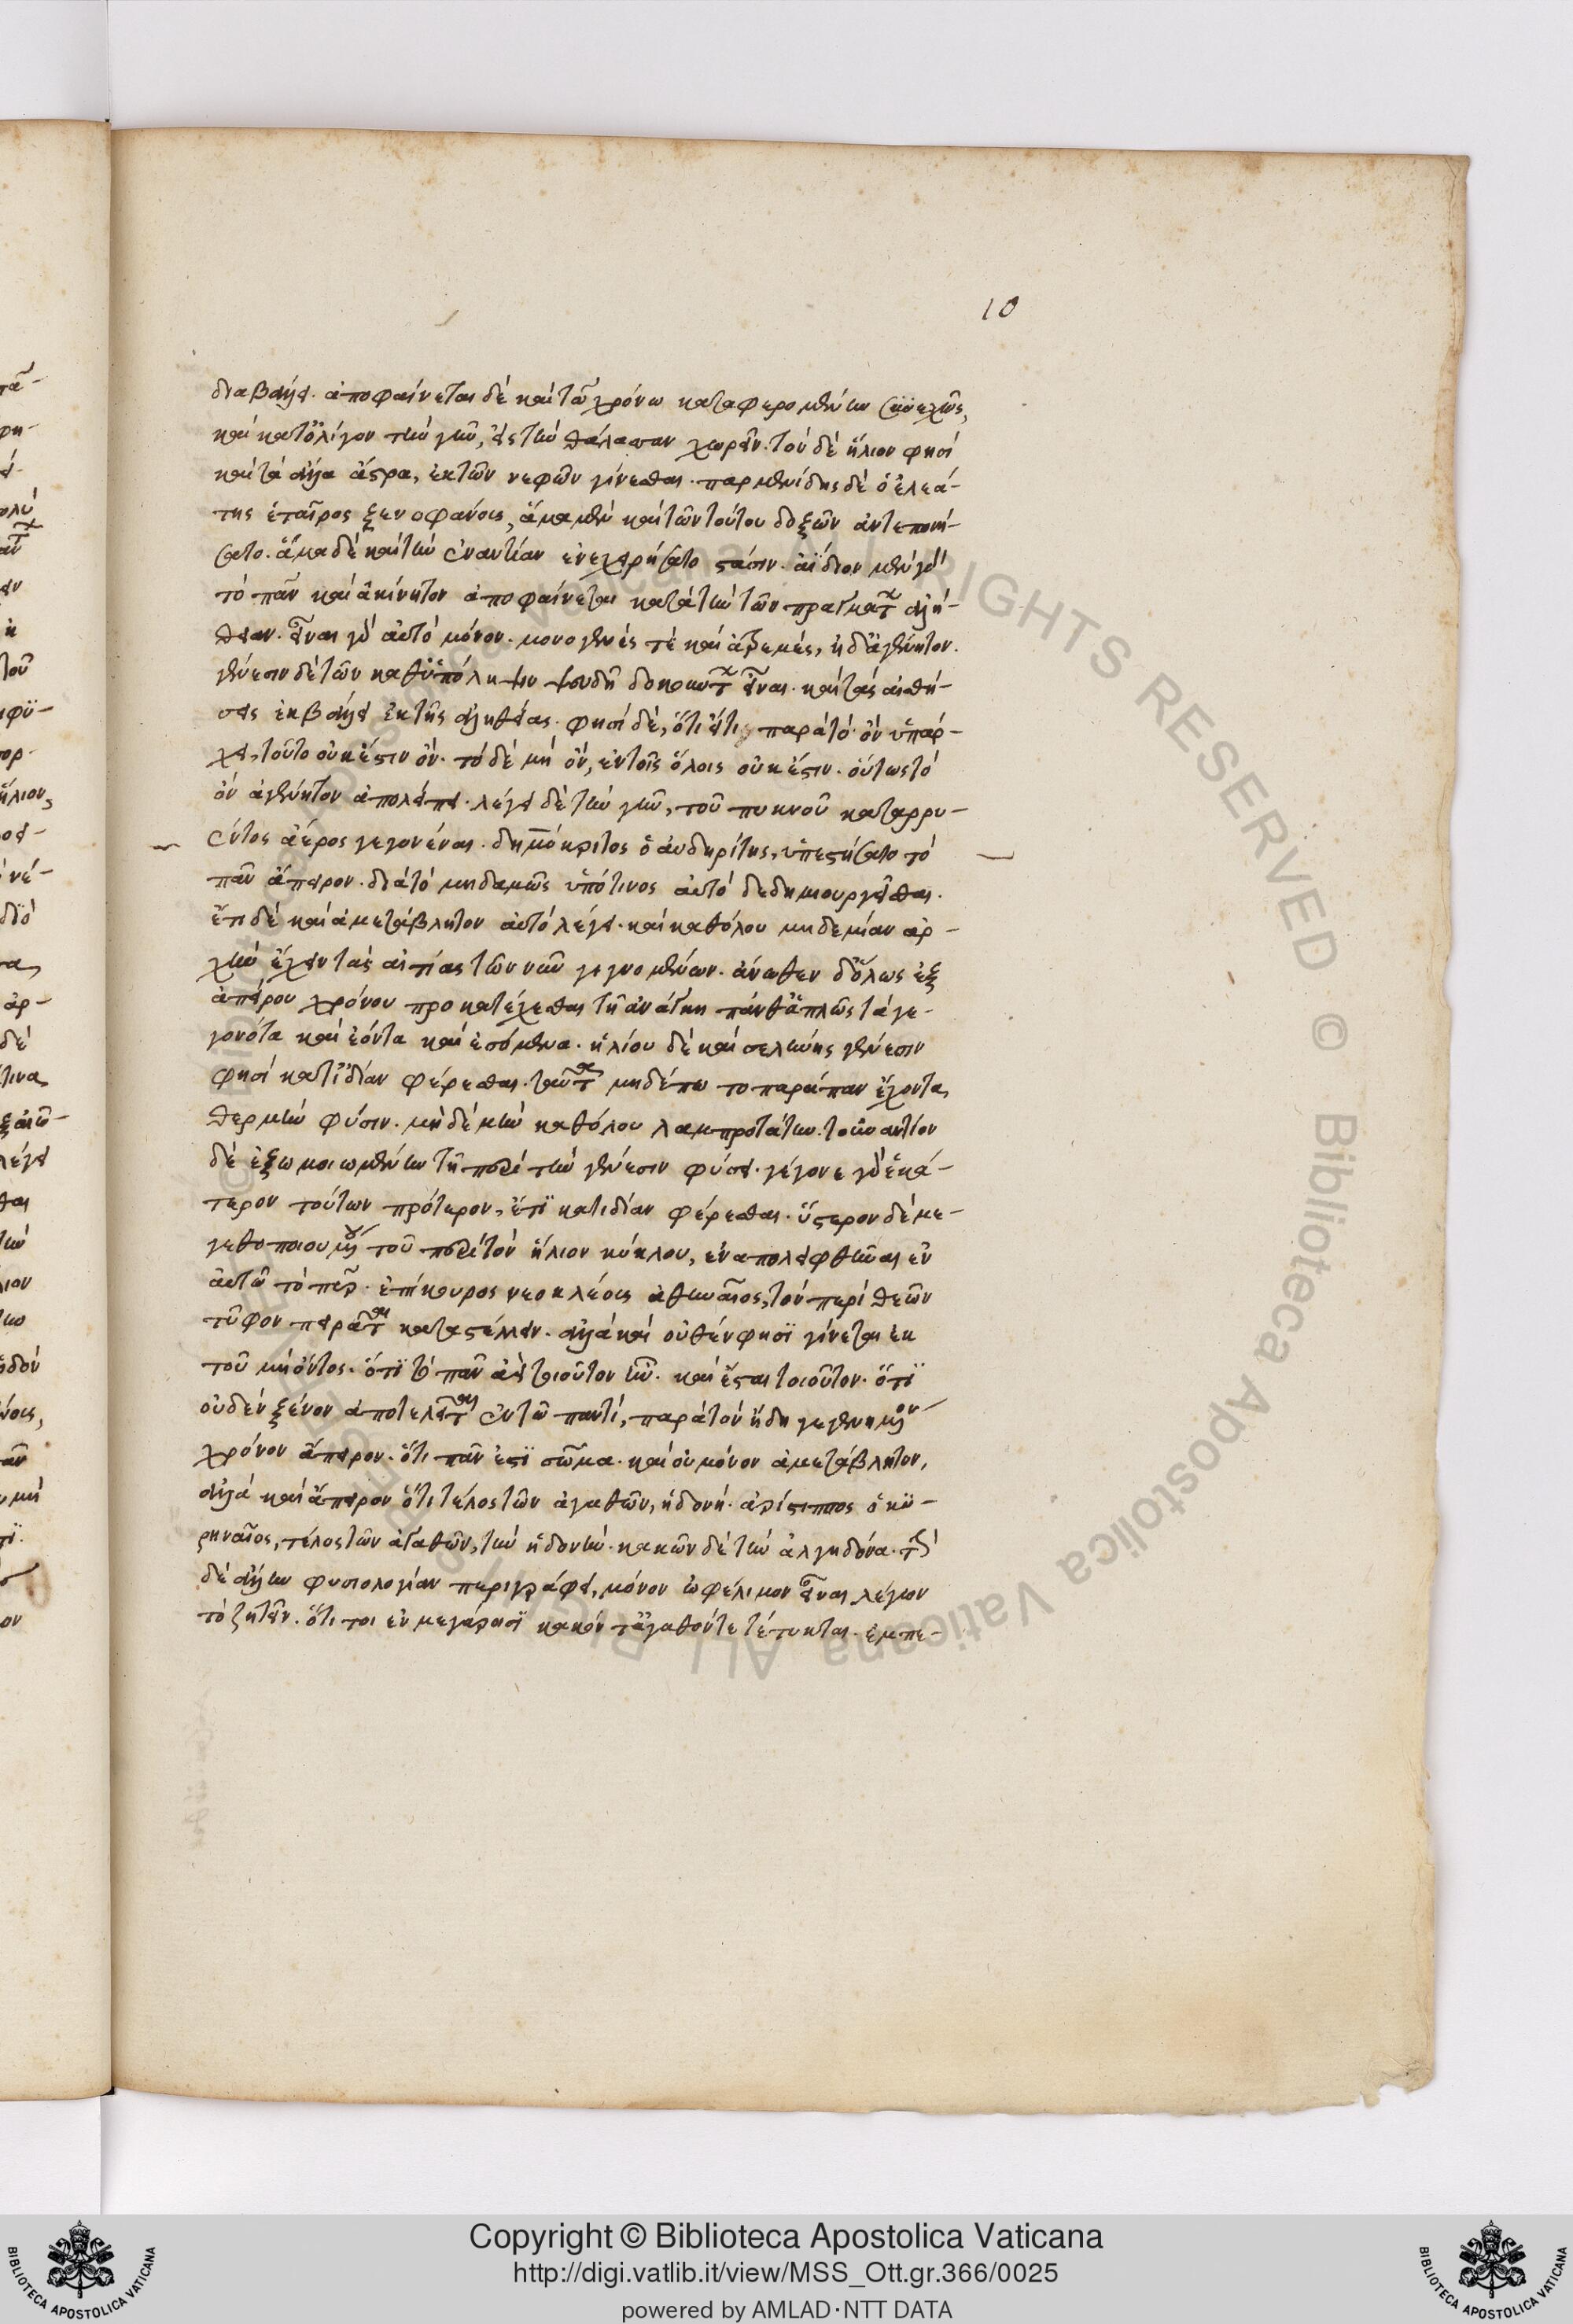 10
διαβάλλει. ἀποφαίνεται δὲ καὶ τῶ χρόνω καταφερομένην συνεχῶς,
καὶ κατ' ὀλίγον τὴν γῆν, εἰς τὴν θάλασσαν χωρεῖν. τὸν δὲ ἥλιον φησὶ
καὶ τὰ ἄλλα ἄστρα, ἐκ τῶν νεφῶν γίνεσθαι. παρμενίδης δὲ ὁ ἐλεά-
της ἑταῖρος ξενοφάνους, ἅμα μὲν καὶ τῶν τούτου δοξῶν ἀντεποιή-
σατο. ἅμα δὲ καὶ τὴν ἐναντίαν ἐνεχείρησατο στάσιν. ἀΐδιον μὲν γὰρ
τὸ πᾶν καὶ ἀκίνητον ἀποφαίνεται κατὰ τὴν τῶν πραγμάτων ἀλή-
θειαν. εἶναι γὰρ αὐτὸ μόνον. μονογενές τὲ καὶ ἀτρεμές, ἠδ' ἀγένητον.
γένεσιν δὲ τῶν καθ' ὑπόληψιν ψευδῆ δοκούντων εἶναι. καὶ τὰς αἰσθή-
σεις ἐκβάλλει ἐκ τῆς ἀληθείας. φησὶ δὲ, ὅτι εἴτι παρὰ τὸ ὂν ὑπάρ-
χει, τοῦτο οὐκ ἔστιν ὄν. τὸ δὲ μὴ ὂν, ἐν τοῖς ὅλοις οὐκ ἔστιν. οὕτως τὸ
ὂν ἀγένητον ἀπολείπει. λέγει δὲ τὴν γῆν, τοῦ πυκνοῦ καταρρυ-
έντος ἀέρος γεγονέναι. δημόκριτος ὁ αὐδηρίτης, ὑπεστήσατο τὸ
πᾶν ἄπειρον. διὰ τὸ μηδαμῶς ὑπό τινος αὐτὸ δεδημιουργεῖσθαι.
ἔτι δὲ καὶ ἀμετάβλητον αὐτὸ λέγει. καὶ καθόλου μηδεμίαν ἀρ-
χὴν ἔχειν τὰς αἰτίας τῶν νῦν γιγνομένων. ἄνωθεν δ' ὅλως ἐξ
ἀπείρου χρόνου προκατέχεσθαι τῆ ἀνάγκη πάνθ' ἁπλῶς τὰ γε-
γονότα καὶ ἐόντα καὶ ἐσόμενα. ἡλίου δὲ καὶ σελήνης γένεσιν
φησὶ κατ' ἰδίαν φέρεσθαι. ταῦτα μηδέπω τοπαράπαν ἔχοντα
θερμὴν φύσιν. μὴ δὲ μὴν καθόλου λαμπροτάτην. τοὐναντίον
δὲ ἐξωμοιωμένην τῆ περὶ τὴν γένεσιν φύσει. γέγονε γὰρ ἑκά-
τερον τούτων πρότερον, ἔτι κατιδίαν φέρεσθαι. ὕστερον δὲ με-
γεθοποιουμένου τοῦ περὶ τὸν ἥλιον κύκλου, ἐναπολειφθῆναι ἐν
αὐτῶ τὸ πῦρ. ἐπίκουρος νεοκλέους ἀθηναῖος, τὸν περὶ θεῶν
τῦφον πειρᾶται καταστέλλειν. ἀλλὰ καὶ οὐθέν φησι γίνεται ἐκ
τοῦ μὴ ὄντος. ὅτι τὸ πᾶν ἀεὶ τοιοῦτον ἦν. καὶ ἔσται τοιοῦτον. ὅτι
οὐδὲν ξένον ἀποτελεῖται ἐν τῶ παντὶ, παρὰ τὸν ἤδη γεγενημένον
χρόνον ἄπειρον. ὅτι πᾶν ἐστὶ σῶμα. καὶ οὐ μόνον ἀμετάβλητον,
ἀλλὰ καὶ ἄπειρον ὅτι τέλος τῶν ἀγαθῶν, ἡδονή. ἀρίστιππος ὁ κυ-
ρηναῖος, τέλος τῶν ἀγαθῶν, τὴν ἡδονήν. κακῶν δὲ τὴν ἀλγηδόνα. τὴν
δὲ ἄλλην φυσιολογίαν περιγράφει, μόνον ὠφέλιμον εἶναι λέγων
τὸ ζητεῖν. ὅτι τοι ἐν μεγάροισι κακόν τ' ἀγαθόν τε τέτυκται. ἐμπε-
Copyright © Biblioteca Apostolica Vaticana
http://digi.vatlib.it/view/MSS_Ott.gr.366/0025
powered by AMLAD·NTT DATA